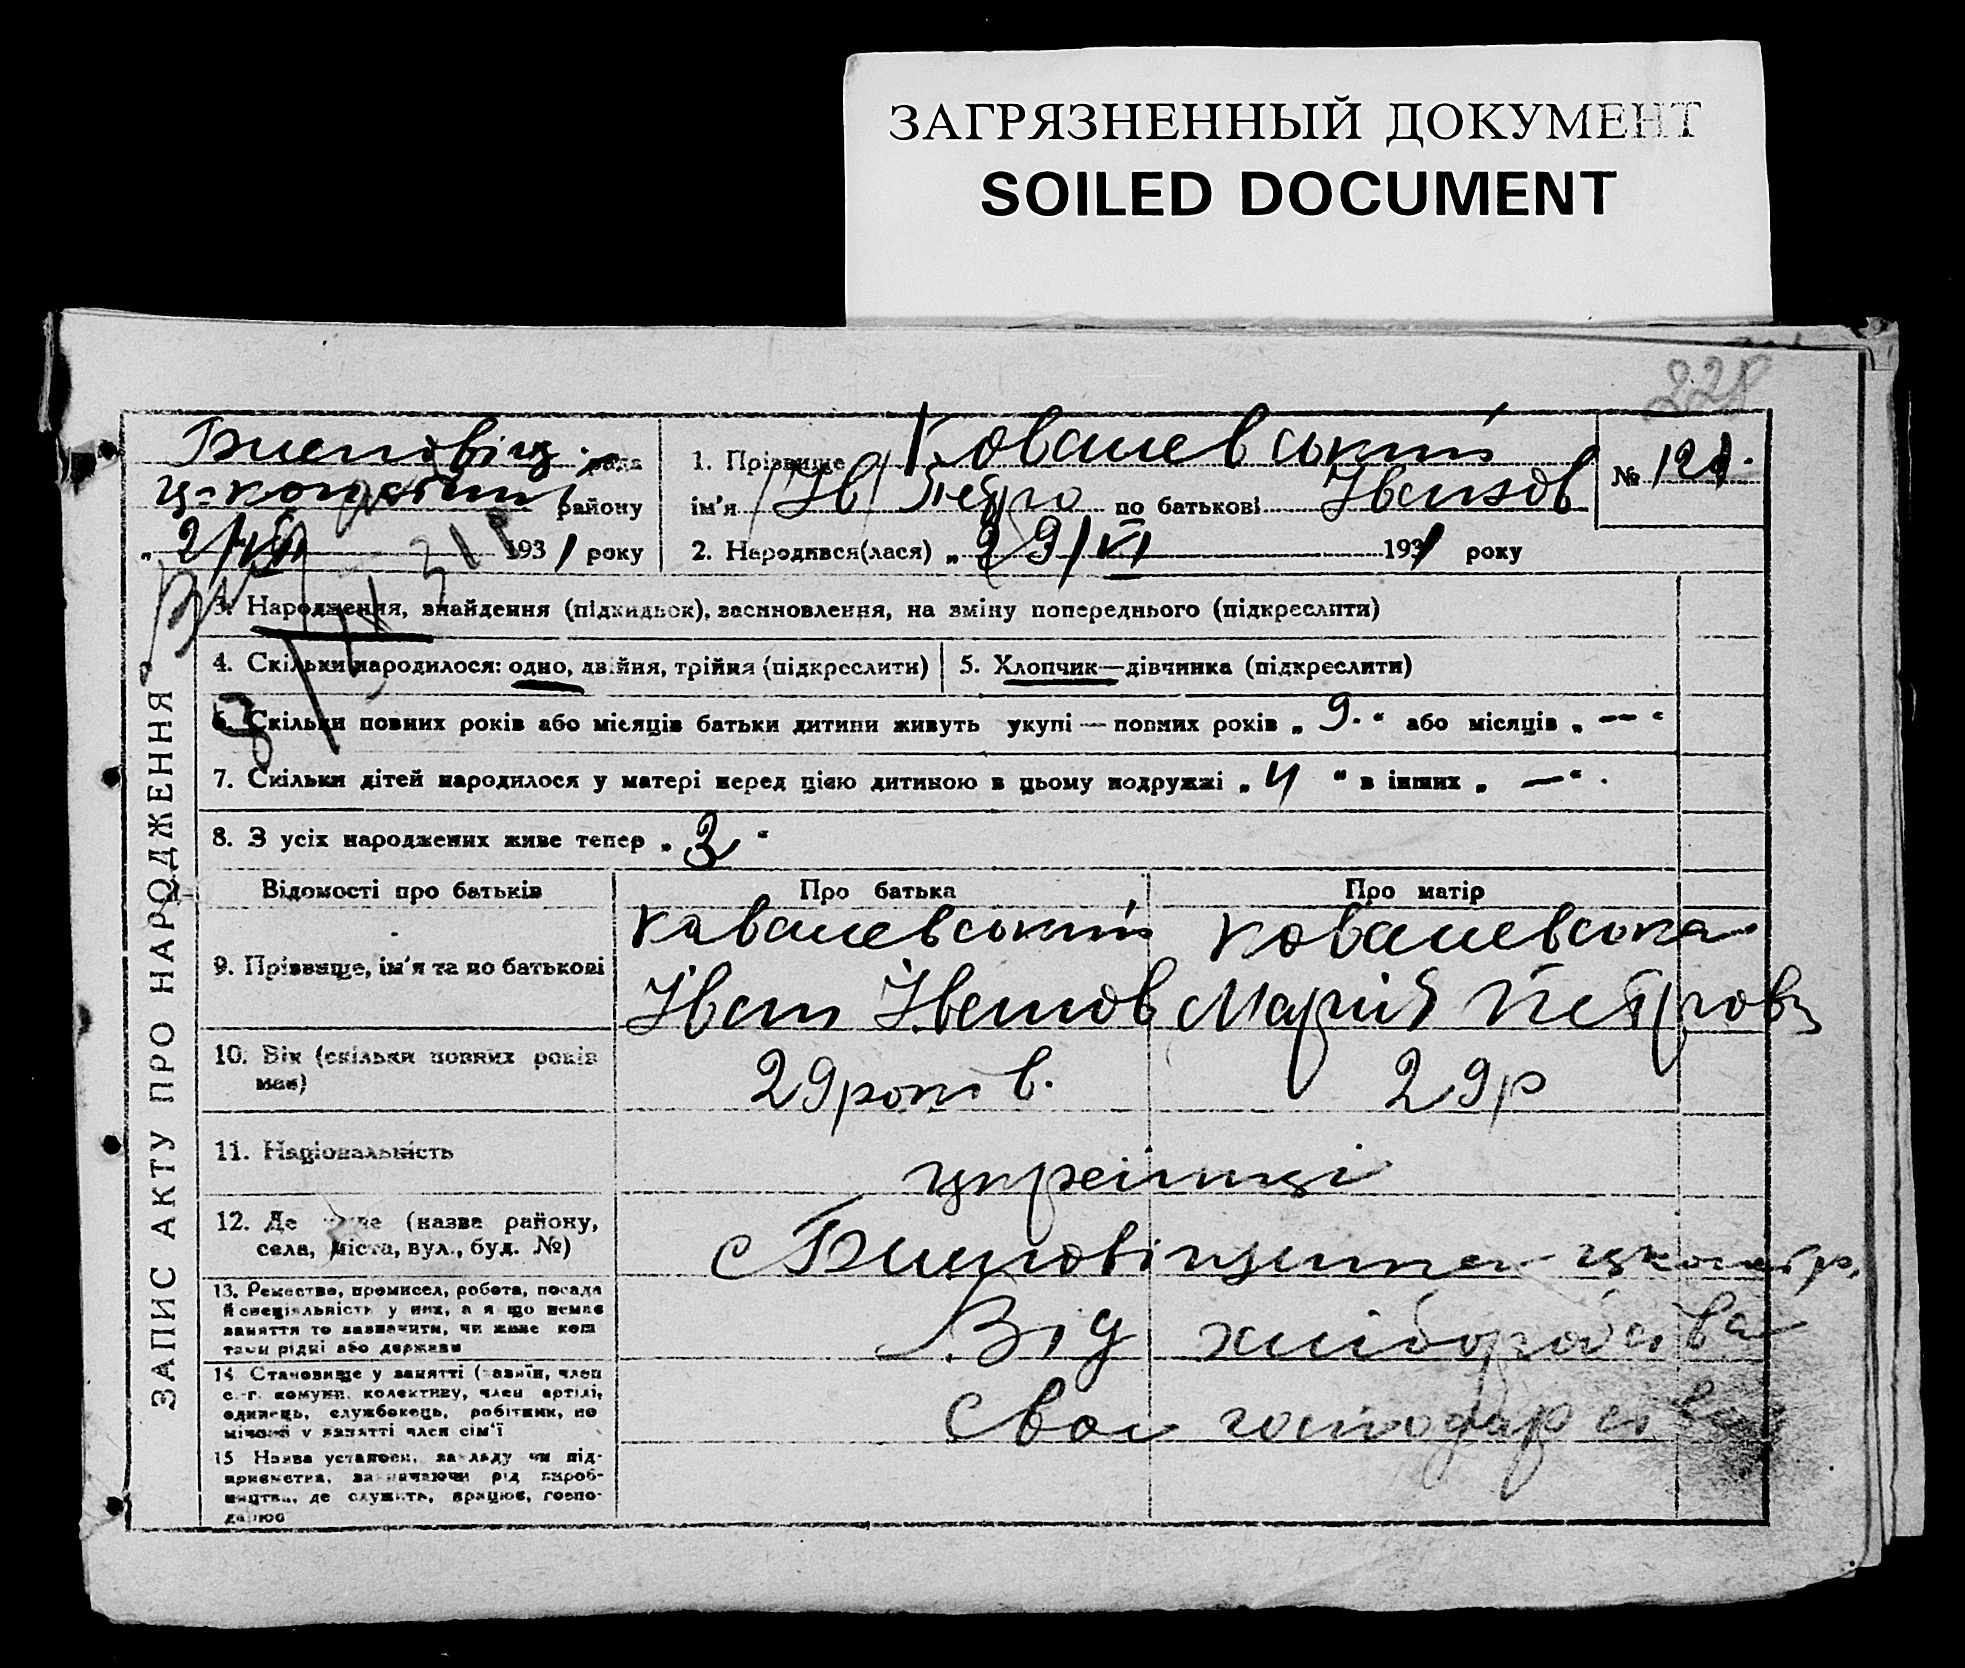 ЗАГРЯЗНЕННЫЙ ДОКУМЕНТ
SOILED DOCUMENT
228
ЗАПИС АКТУ ПРО НАРОДЖЕННЯ
рада
району
1931 року
1. Прізвище Ковалевський
ім'я Петро по батькові Іванов
№ 121.
2. Народився(лася) „29/VI 1931 року
3. Народження, знайдення (підкидьок), засиновлення, на зміну попереднього (підкреслити)
4. Скільки народилося: одно, двійня, трійня (підкреслити)
5. Хлопчик—дівчинка (підкреслити)
6. Скільки повних років або місяців батьки дитини живуть укупі — повних років „ 9. “ або місяців „ — “
7. Скільки дітей народилося у матері перед цією дитиною в цьому подружжі „ 4 “ в інших „ — “.
8. З усіх народжених живе тепер „ 3 “
Відомості про батьків Про батька Про матір
9. Прізвище, ім'я та по батькові
Ковалевський Ковалевська
Іван Іванов Марія Петрова
10. Вік (скільки повних років має)
29 років. 29 р
11. Національність
українці
12. Де живе (назва району,
села, міста, вул., буд. №)
с
13. Ремество, промисел, робота, посада
й спеціяльність у них, а якщо немає
заняття то зазначити, чи живе кош
тами рідні або держави
Від хліборобства
14. Становище у занятті (хазяїн, член
с.-г. комуни, колективу, член артілі,
одинець, службовець, робітник, по
мічний у занятті член сім'ї
Своє господарство
15 Назва установи, закладу чи під-
приємства, зазначаючи рід вироб-
ництва, де служить, працює, госпо-
дарює